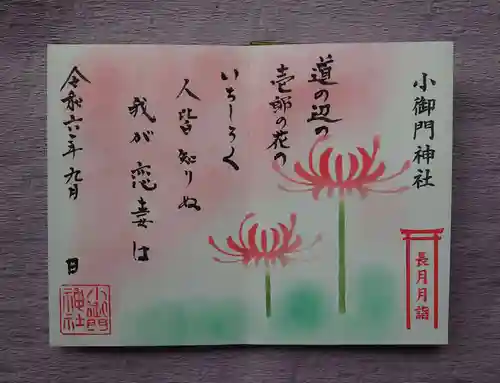 小御門神社
長月月詣
道の辺の
壱師の花の
いちしろく
人皆知りぬ
我が恋妻は
令和六年九月
日
小御門神社